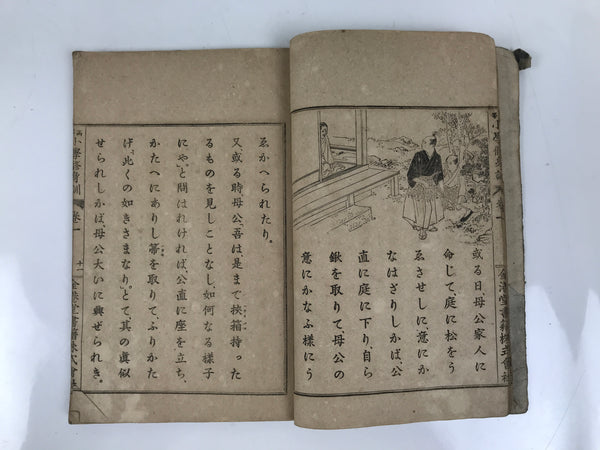 或る日、母公家人に
命じて、庭に松をう
ゑさせしに、意にか
なはざりしかば、公
直に庭に下り、自ら
鍬を取りて母公の
意にかなふ様にう
ゑかへられたり。
又、或る時、母公、吾は、是まで挾箱持った
るものを見しことなし、如何なる樣子
にや。」と問はれければ、公直に座を立ち、
かたへにありし箒を取りて、ふりかた
げ、「此くの如きさまなり。」とて、其の眞似
せられしかば、母公大いに興ぜられき。
小學修身訓 卷一 十一 金港堂書籍株式會社